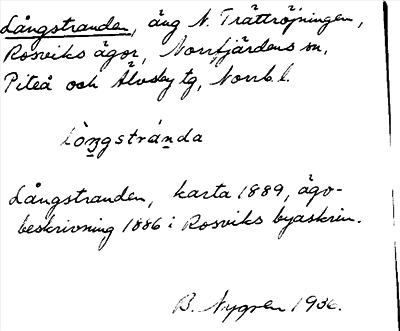 Långstranden, äng N. Trättröjningen,
Rosviks ägor, Norrfjärdens sn,
Piteå och Älvsby tg, Norrb. l.
Långstranden, karta 1889, ägo-
beskrivning 1886 i Rosviks byaskrin.
B. Nygren 1936.